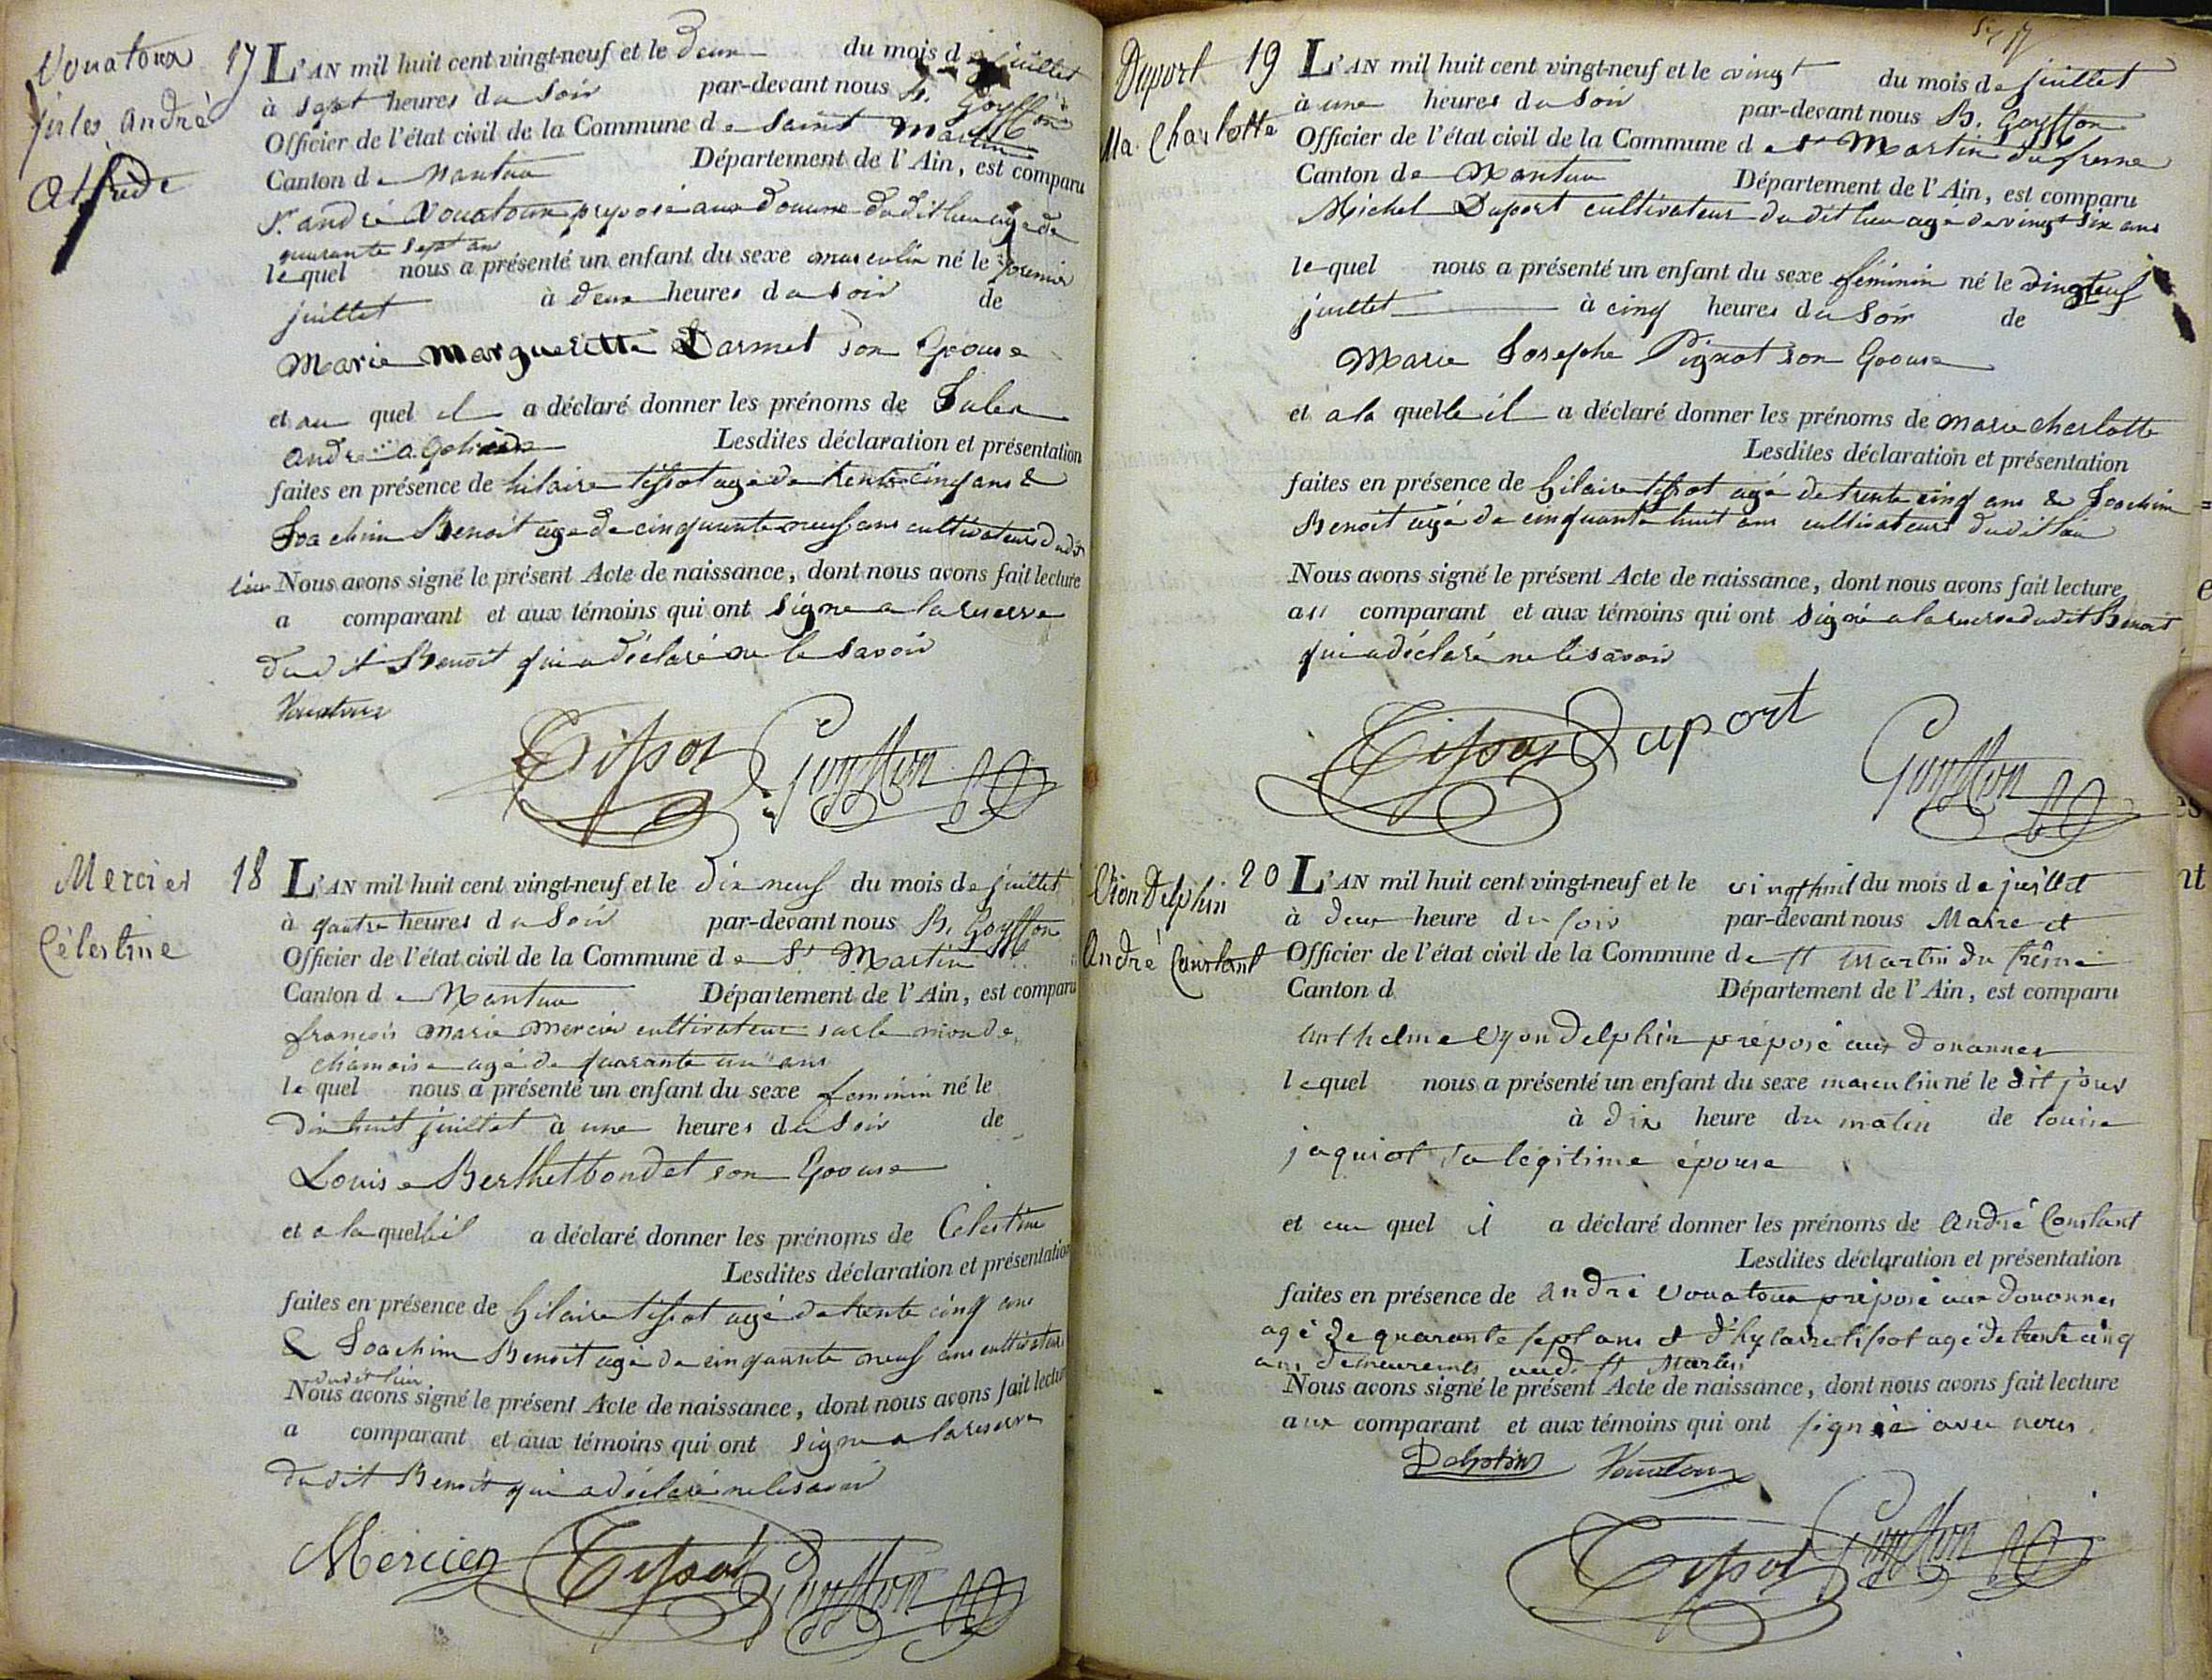 Vouatoux
jules andré
Alfrède
17 L'AN mil huit cent vingt-neuf et le deux du mois de juillet
à sept heures du soir par-devant nous B. Goyffon
Officier de l'état civil de la Commune de saint Martin
Canton de Nantua Département de l'Ain, est comparu
Sr. andré Vouatoux preposé aux douane dudit lieu age de
quarante sept an
lequel nous a présenté un enfant du sexe masculin né le premier
juillet à deux heures du soir de
Marie Margueritte Darmet son Epouse
et au quel il a déclaré donner les prénoms de Jules
andré
Lesdites déclaration et présentation
faites en présence de hilaire tissot agé de trente cinq ans &
Joachim Benoit age de cinquante neuf ans cultivateurs dudit
lieu Nous avons signé le présent Acte de naissance, dont nous avons fait lecture
a comparant et aux témoins qui ont signe a la reserve
dudit Benoit qui a déclaré ne le savoir
Vouatoux
Tissot Goyffon
Mercier
Célestine
18 L'AN mil huit cent vingt-neuf et le dix neuf du mois de juillet
à quatre heures du soir par-devant nous B. Goyffon
Officier de l'état civil de la Commune de St Martin
Canton de Nantua Département de l'Ain, est comparu
françois marie mercier cultivateur sur le mon de
chamoise agé de quarante un ans
lequel nous a présenté un enfant du sexe feminin né le
dix huit juillet à une heures du soir de
Louise Berthetbondet son Epouse
et a la quelle il a déclaré donner les prénoms de Celestine
Lesdites déclaration et présentation
faites en présence de hilaire tissot agé de trente cinq ans
& Joachim Benoit agé de cinquante neuf ans cultivateurs
dudit lieu
Nous avons signé le présent Acte de naissance, dont nous avons fait lecture
a comparant et aux témoins qui ont signe a la reserve
dudit Benoit qui a déclaré ne le savoir
Mercier Tissot Goyffon
Duport
Ma. Charlotte
19 L'AN mil huit cent vingt-neuf et le vingt du mois de juillet
à une heures du soir par-devant nous B. Goyffon
Officier de l'état civil de la Commune de St Martin du fresne
Canton de Nantua Département de l'Ain, est comparu
Michel Duport cultivateur du dit lieu agé de vingt six ans
lequel nous a présenté un enfant du sexe féminin né le
juillet à cinq heures du soir de
Marie Josephe Pignot son Epouse
et a la quelle il a déclaré donner les prénoms de marie charlotte
Lesdites déclaration et présentation
faites en présence de hilaire tissot agé de trente cinq ans & Joachim
Benoit agé de cinquante huit ans cultivateurs dudit lieu
Nous avons signé le présent Acte de naissance, dont nous avons fait lecture
au comparant et aux témoins qui ont signé a la reserve dudit Benoit
qui a déclaré ne le savoir
Tissot Duport Goyffon
Vion Delphin
André Constant
20 L'AN mil huit cent vingt-neuf et le vingthuit du mois de juillet
à deux heure du soir par-devant nous Maire et
Officier de l'état civil de la Commune de St Martin du frêsne
Canton d Département de l'Ain, est comparu
Anthelme Vyon Delphin préposé aux douannes
lequel nous a présenté un enfant du sexe masculin né le dit jour
à dix heure du matin de louise
jaquiot sa légitime épouse
et au quel il a déclaré donner les prénoms de André Constant
Lesdites déclaration et présentation
faites en présence de andré vouatoux préposé aux douannes
agé de quarante sept ans et d'hylaire tissot agé de trente cinq
ans demeurants aud. St Martin
Nous avons signé le présent Acte de naissance, dont nous avons fait lecture
aux comparant et aux témoins qui ont signé avec nous.
Delphin Vouatoux
Tissot Goyffon